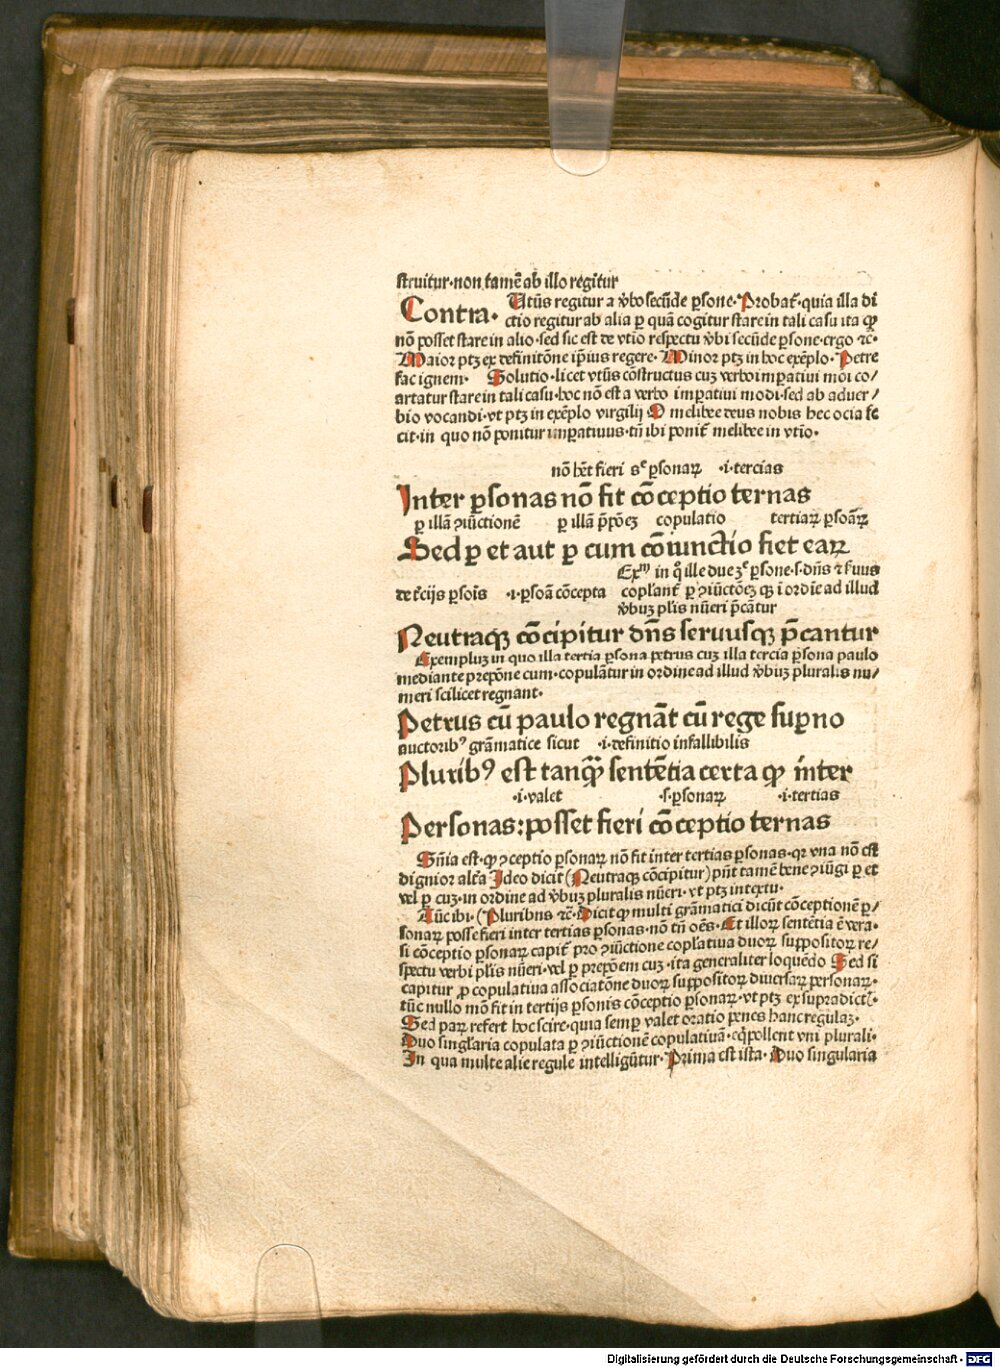 struitur·non tamē ab illo regitur
Contra· Vtūs regitur a ꝟbo secūde ꝑsone·Probat᷑·quia illa di
ctio regitur ab alia ꝑ quā cogitur stare in tali casu ita ꝙ
nō posset stare in alio·sed sic est de vtīo respectu ꝟbi secūde ꝑsone·ergo ⁊c̄·
Maior ptꝫ ex definitōne ip̄ius regere·Minor ptꝫ in hoc exēplo·Petre
fac ignem· Solutio·licet vtūs cōstructus cuꝫ verbo imꝑatiui moi co/
artatur stare in tali casu·hoc nō est a verbo imꝑatiui modi·sed ab aduer/
bio vocandi·vt ptꝫ in exēplo virgilij O melibee deus nobis hec ocia fe
cit·in quo nō ponitur imꝑatiuus·tn̄ ibi ponit᷑ melibee in vtīo·
nō hēt fieri sᶜ ꝑsonaꝝ ·i·tercias
Inter ꝑsonas nō fit cōceptio ternas
ꝑ illā ꝯiūctionē ꝑ illā p̄pōeꝫ copulatio tertiaꝝ ꝑsoāꝝ
Sed ꝑ et aut ꝑ cum cōiunctio fiet eaꝝ
Exᵐ in q̄ ille due ꝫᵉ ꝑsone·s·dn̄s ⁊ ẜuus
de t᷑cijs ꝑsoīs ·i·ꝑsoā cōcepta copl̄ant᷑ ꝑ ꝯiūctōeꝫ qꝫ i ordīe ad illud
ꝟbuꝫ pl̄is nūeri p̄cātur
Neutraqꝫ cōcipitur dn̄s seruusqꝫ p̄cantur
Exempluꝫ in quo illa tertia ꝑsona petrus cuꝫ illa tercia ꝑsona paulo
mediante prepōne cum·copulātur in ordine ad illud ꝟbuꝫ pluralis nu/
meri scilicet regnant·
Petrus cū paulo regnāt cū rege suꝑno
auctoribꝰ grāmatice sicut ·i·definitio infallibilis
Pluribꝰ est tanqᷓꝫ sentētia certa ꝙ inter
·i·valet ·s·ꝑsonaꝝ ·i·tertias
Personas:posset fieri cōceptio ternas
Sn̄ia est·ꝙ ꝯceptio ꝑsonaꝝ nō fit inter tertias ꝑsonas·qꝛ vna nō est
dignior alt̄a Ideo dicit (Neutraqꝫ cōcipitur) pn̄t tamē bene ꝯiūgi ꝑ et
vel ꝑ cuꝫ·in ordine ad ꝟbuꝫ pluralis nūeri·vt ptꝫ in textu·
Tūc ibi·(Pluribus ⁊c̄·Dicit ꝙ multi grāmatici dicūt cōceptionē ꝑ/
sonaꝝ posse fieri inter tertias ꝑsonas·nō tn̄ oēs·Et illoꝝ sentētia ē vera·
si cōceptio ꝑsonaꝝ capit᷑ pro ꝯiūctione copl̄atiua duoꝝ suppositoꝝ re/
spectu verbi pl̄is nūeri·vel ꝑ prepōem cuꝫ·ita generaliter loquēdo Sed si
capitur ꝓ copulatiua associatōne duoꝝ suppositoꝝ diuersaꝝ personaꝝ·
tūc nullo mō fit in tertijs ꝑsonis cōceptio ꝑsonaꝝ·vt ptꝫ ex supradict᷑·
Sed paꝝ refert hoc scire·quia semꝑ valet oratio penes hanc regulaꝫ·
Duo singl̄aria copulata ꝑ ꝯiūctionē copulatiuā·eq̄pollent vni plurali·
In qua multe alie regule intelligūtur·Prima est ista·Duo singularia
Digitalisierung gefördert durch die Deutsche Forschungsgemeinschaft - DFG